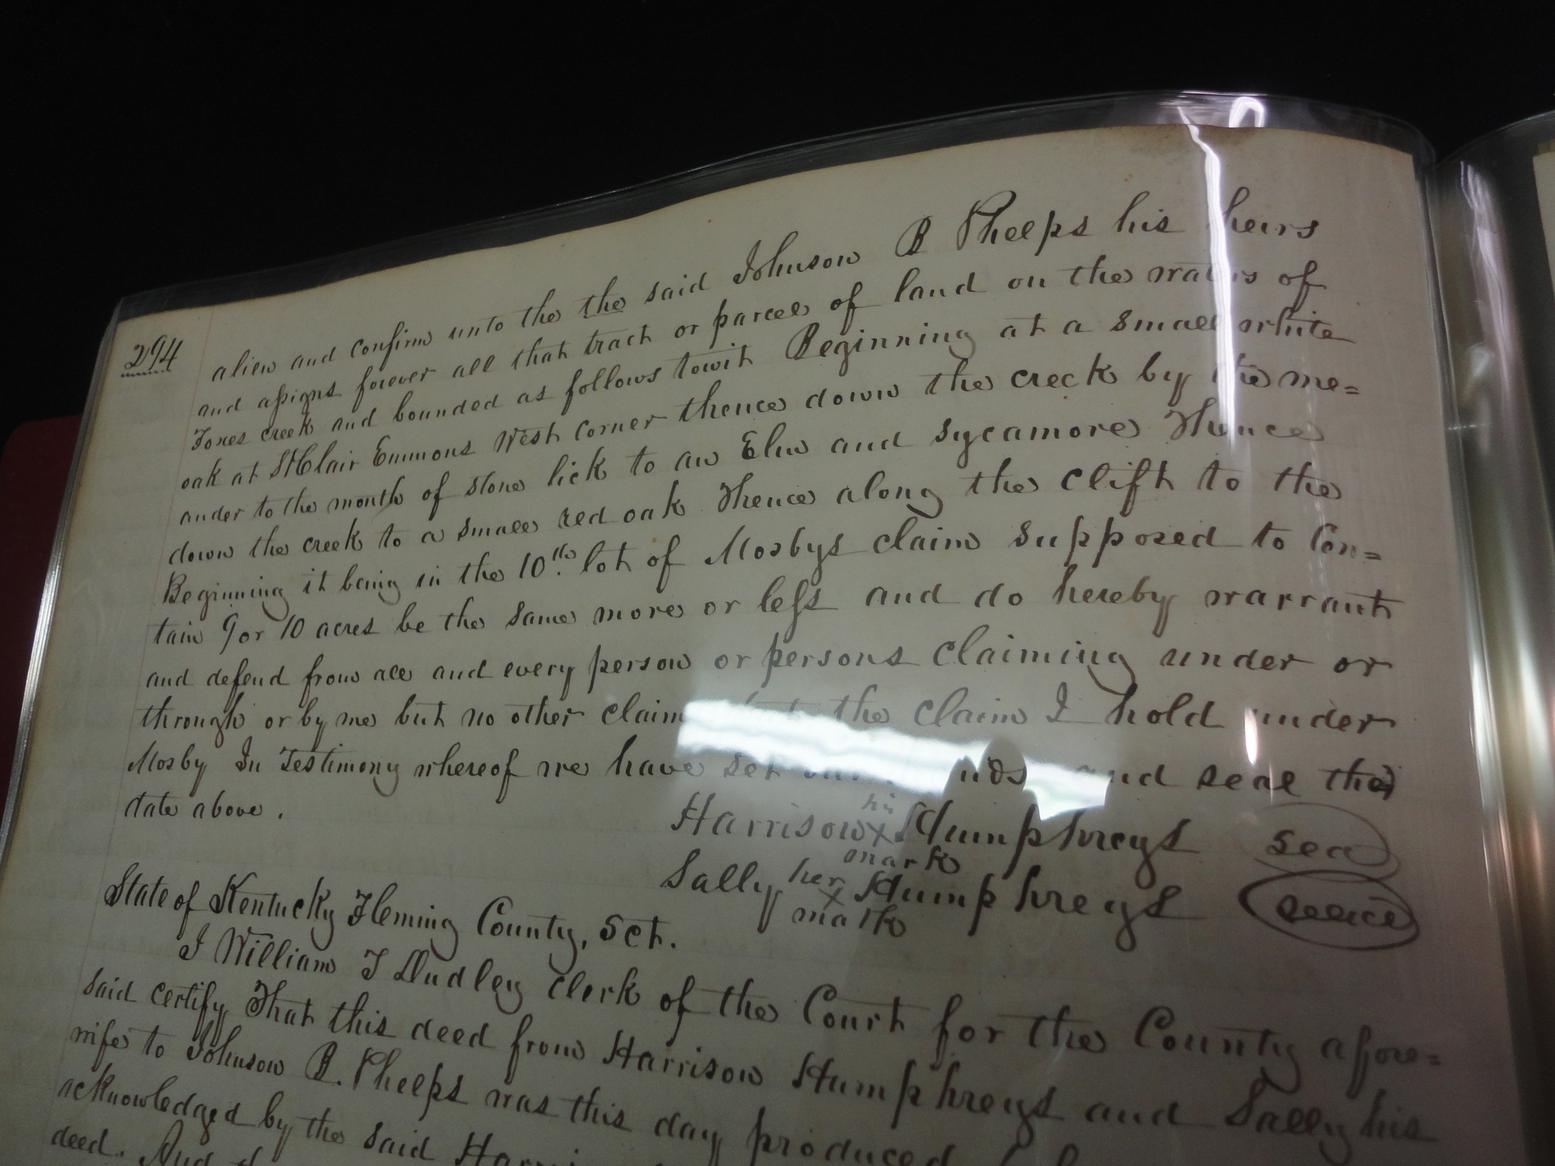 294
alien and confirm unto the the said Johnson B Phelps his heirs
and assigns forever all that tract or parcel of land on the waters of
Foxes creek and bounded as follows towit Beginning at a small white
oak at StClair Emmons West corner thence down the creek by the me=
ander to the mouth of stone lick to an Elm and Sycamore Thence
down the creek to a small red oak Thence along the clift to the
Beginning it being in the 10th lot of Mosbys claim supposed to Con=
tain 9 or 10 acres be the same more or less and do hereby warrant
and defend from all and every person or persons claiming under or
through or by me but no other claim but the claim I hold under
Mosby In Testimony whereof we have set and seal the
date above.
his
Harrison x Humphreys seal
mark
her
Sally x Humphreys seal
mark
State of Kentucky Fleming County, Sct.
I William T Dudley clerk of the Court for the County afore=
said certify That this deed from Harrison Humphreys and Sally his
wife to Johnson B. Phelps was this day produced
acknowledged by the said
deed. And